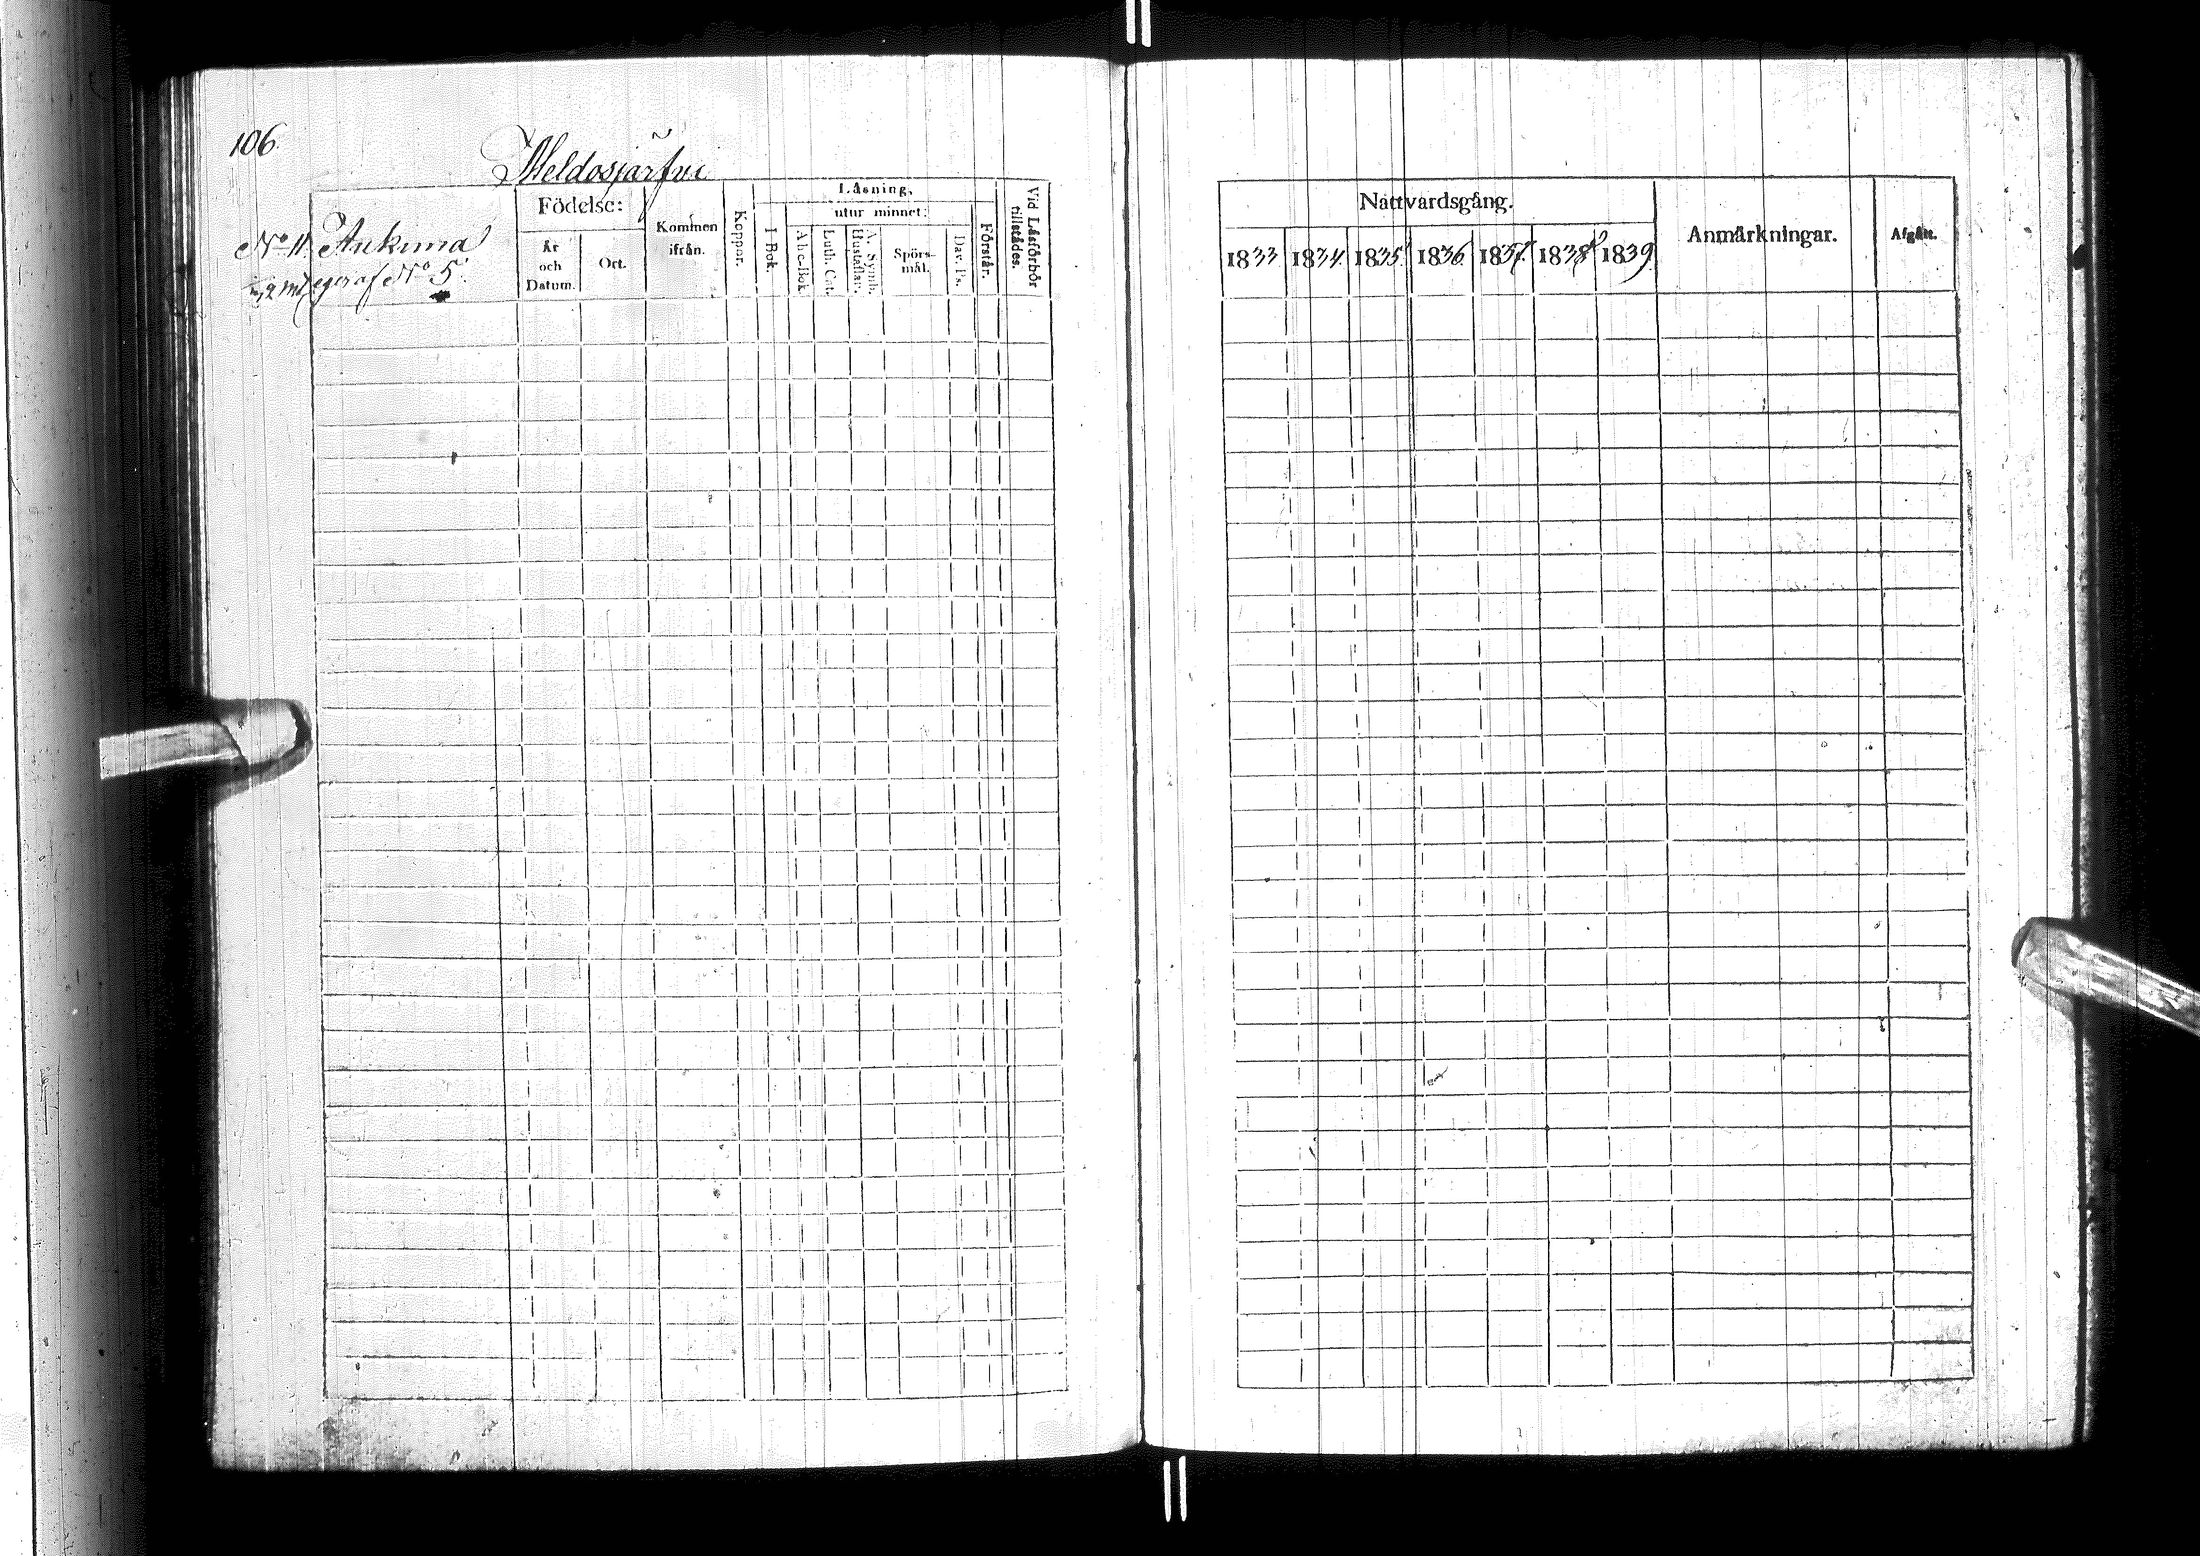 106.
Meldosjärfvi
No 11. Aukuma
äges af No 5.
Födelse:
År
och
Datum.
Ort.
Kommen
ifrån.
Koppor.
Läsning,
I Bok.
utur minnet:
Abc-Bok.
Luth. Cat.
A. Symb.
Hustaflan.
Spörs-
mål.
Dav. Ps.
Förstår.
Vid Läsförhör
tillstädes.
Nattvardsgång.
1833 1834. 1835. 1836. 1837. 1838 1839.
Anmärkningar.
Afgått.